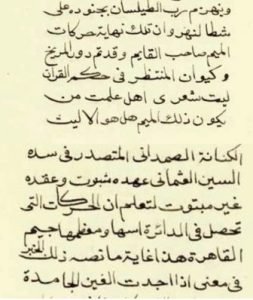 وينهزم رب الطيلسان بجنوده على
شطا لنهر وان تلك نهاية حركات
الميم صاحب القايم وقد تم دور المريخ
وكيوان المنتظر فى حكم القران
ليت شعرى اهل علمت من
يكون ذلك الميم هل هو الا ليث
الكنانة الصمدانى المتصدر فى سده
السين العثمانى عهده مثبوت وعقده
غير مبتوت لتعلم ان الحركات التى
تحصل فى الدائرة اسها ومعظمها جيم
القاهرة هذا غاية ما نصه زلك الغين
فى معنى اذا اجدت الغين الجامدة